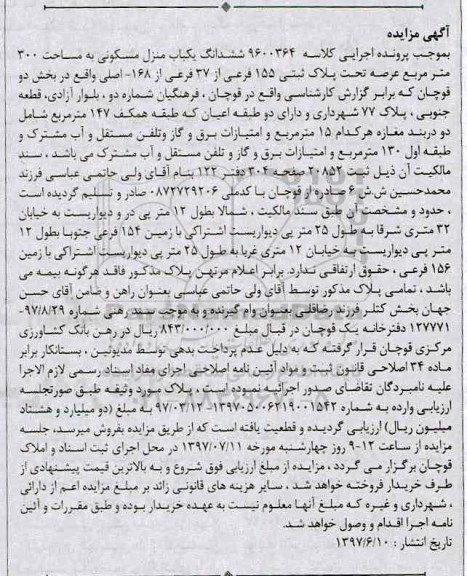 آگهی مزایده
بموجب پرونده اجرایی کلاسه ۹۶۰۰۳۶۴ ششدانگ یکباب منزل مسکونی به مساحت ۳۰۰
متر مربع عرصه تحت پلاک ثبتی ۱۵۵ فرعی از ۳۷ فرعی از ۱۶۸- اصلی واقع در بخش دو
قوچان که برابر گزارش کارشناسی واقع در قوچان ، فرهنگیان شماره دو ، بلوار آزادی، قطعه
جنوبی ، پلاک ۷۷ شهرداری و دارای دو طبقه اعیان که طبقه همکف ۱۴۷ مترمربع شامل
دو دربند مغازه هرکدام ۱۵ مترمربع و امتیازات برق و گاز وتلفن مستقل و آب مشترک و
طبقه اول ۱۳۰ مترمربع و امتیازات برق و گاز و تلفن مستقل و آب مشترک می باشد ، سند
مالکیت آن ذیل ثبت ۲۰۸۵۲ صفحه ۳۰۴ دفتر ۱۲۲ بنام آقای ولی حاتمی عباسی فرزند
محمدحسین ش.ش ۶ صادره از قوچان با کدملی ۰۸۷۲۷۲۹۲۰۶ صادر و تسلیم گردیده است
، حدود و مشخصات آن طبق سند مالکیت ، شمالا بطول ۱۲ متر پی در و دیواریست به خیابان
۳۲ متری شرقا به طول ۲۵ متر پی دیواریست اشتراکی با زمین ۱۵۴ فرعی جنوبا بطول ۱۲
متر پی دیواریست به خیابان ۱۲ متری غربا به طول ۲۵ متر پی دیواریست اشتراکی با زمین
۱۵۶ فرعی ، حقوق ارتفاقی ندارد. برابر اعلام مرتهن پلاک مذکور فاقد هرگونه بیمه می
باشد ، تمامی پلاک مذکور توسط آقای ولی حاتمی عباسی بعنوان راهن و ضامن آقای حسن
جهان بخش کتلر فرزند رضاقلی بعنوان وام گیرنده و به موجب سند رهنی شماره ۹۷/۸/۲۹-
۱۲۷۷۷۱ دفترخانه یک قوچان در قبال مبلغ ۸۴۳/۰۰۰/۰۰۰ ریال در رهن بانک کشاورزی
مرکزی قوچان قرار گرفته که به دلیل عدم پرداخت بدهی توسط مدیونین ، بستانکار برابر
ماده ۳۴ اصلاحی قانون ثبت و مواد آئین نامه اصلاحی اجرای مفاد اسناد رسمی لازم الاجرا
علیه نامبردگان تقاضای صدور اجرائیه نموده است ، پلاک مورد وثیقه طبق صورتجلسه
ارزیابی وارده به شماره ۱۳۹۷۰۵۰۰۶۲۱۹۰۰۱۵۴۲- ۹۷/۰۳/۱۲ به مبلغ (دو میلیارد و هشتاد
میلیون ریال) ارزیابی گردیده و قطعیت یافته است که از طریق مزایده بفروش میرسد، جلسه
مزایده از ساعت ۱۲-۹ روز چهارشنبه مورخه ۱۳۹۷/۰۷/۱۱ در محل اجرای ثبت اسناد و املاک
قوچان برگزار می گردد ، مزایده از مبلغ ارزیابی فوق شروع و به بالاترین قیمت پیشنهادی از
طرف خریدار فروخته خواهد شد ، سایر هزینه های قانونی زائد بر مبلغ مزایده اعم از دارائی
، شهرداری و غیره که مبلغ آنها معلوم نیست به عهده خریدار بوده و طبق مقررات و آئین
نامه اجرا اقدام و وصول خواهد شد.
تاریخ انتشار : ۱۳۹۷/۶/۱۰